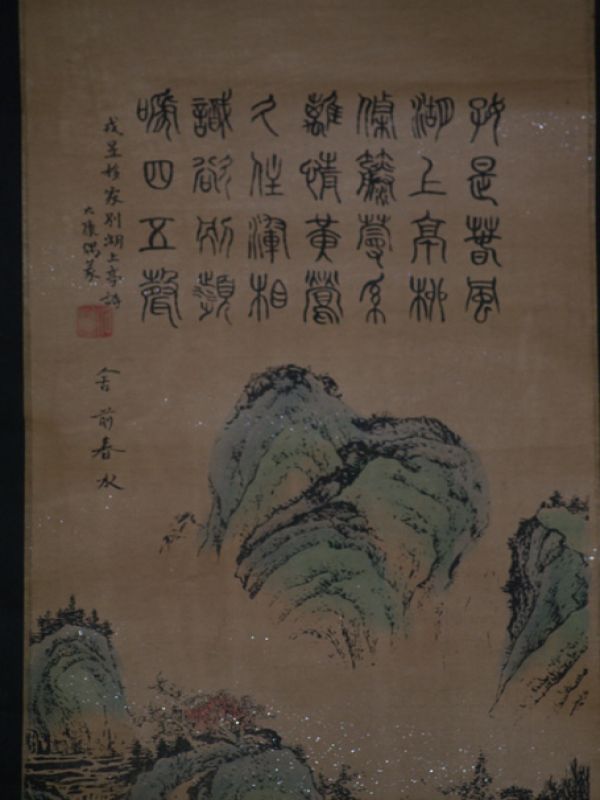 好是春風
湖上亭柳
條籐蔓系
離情黃鶯
久住渾相
識欲別頻
啼四五聲
戎昱移家別湖上亭詩
舍前春水